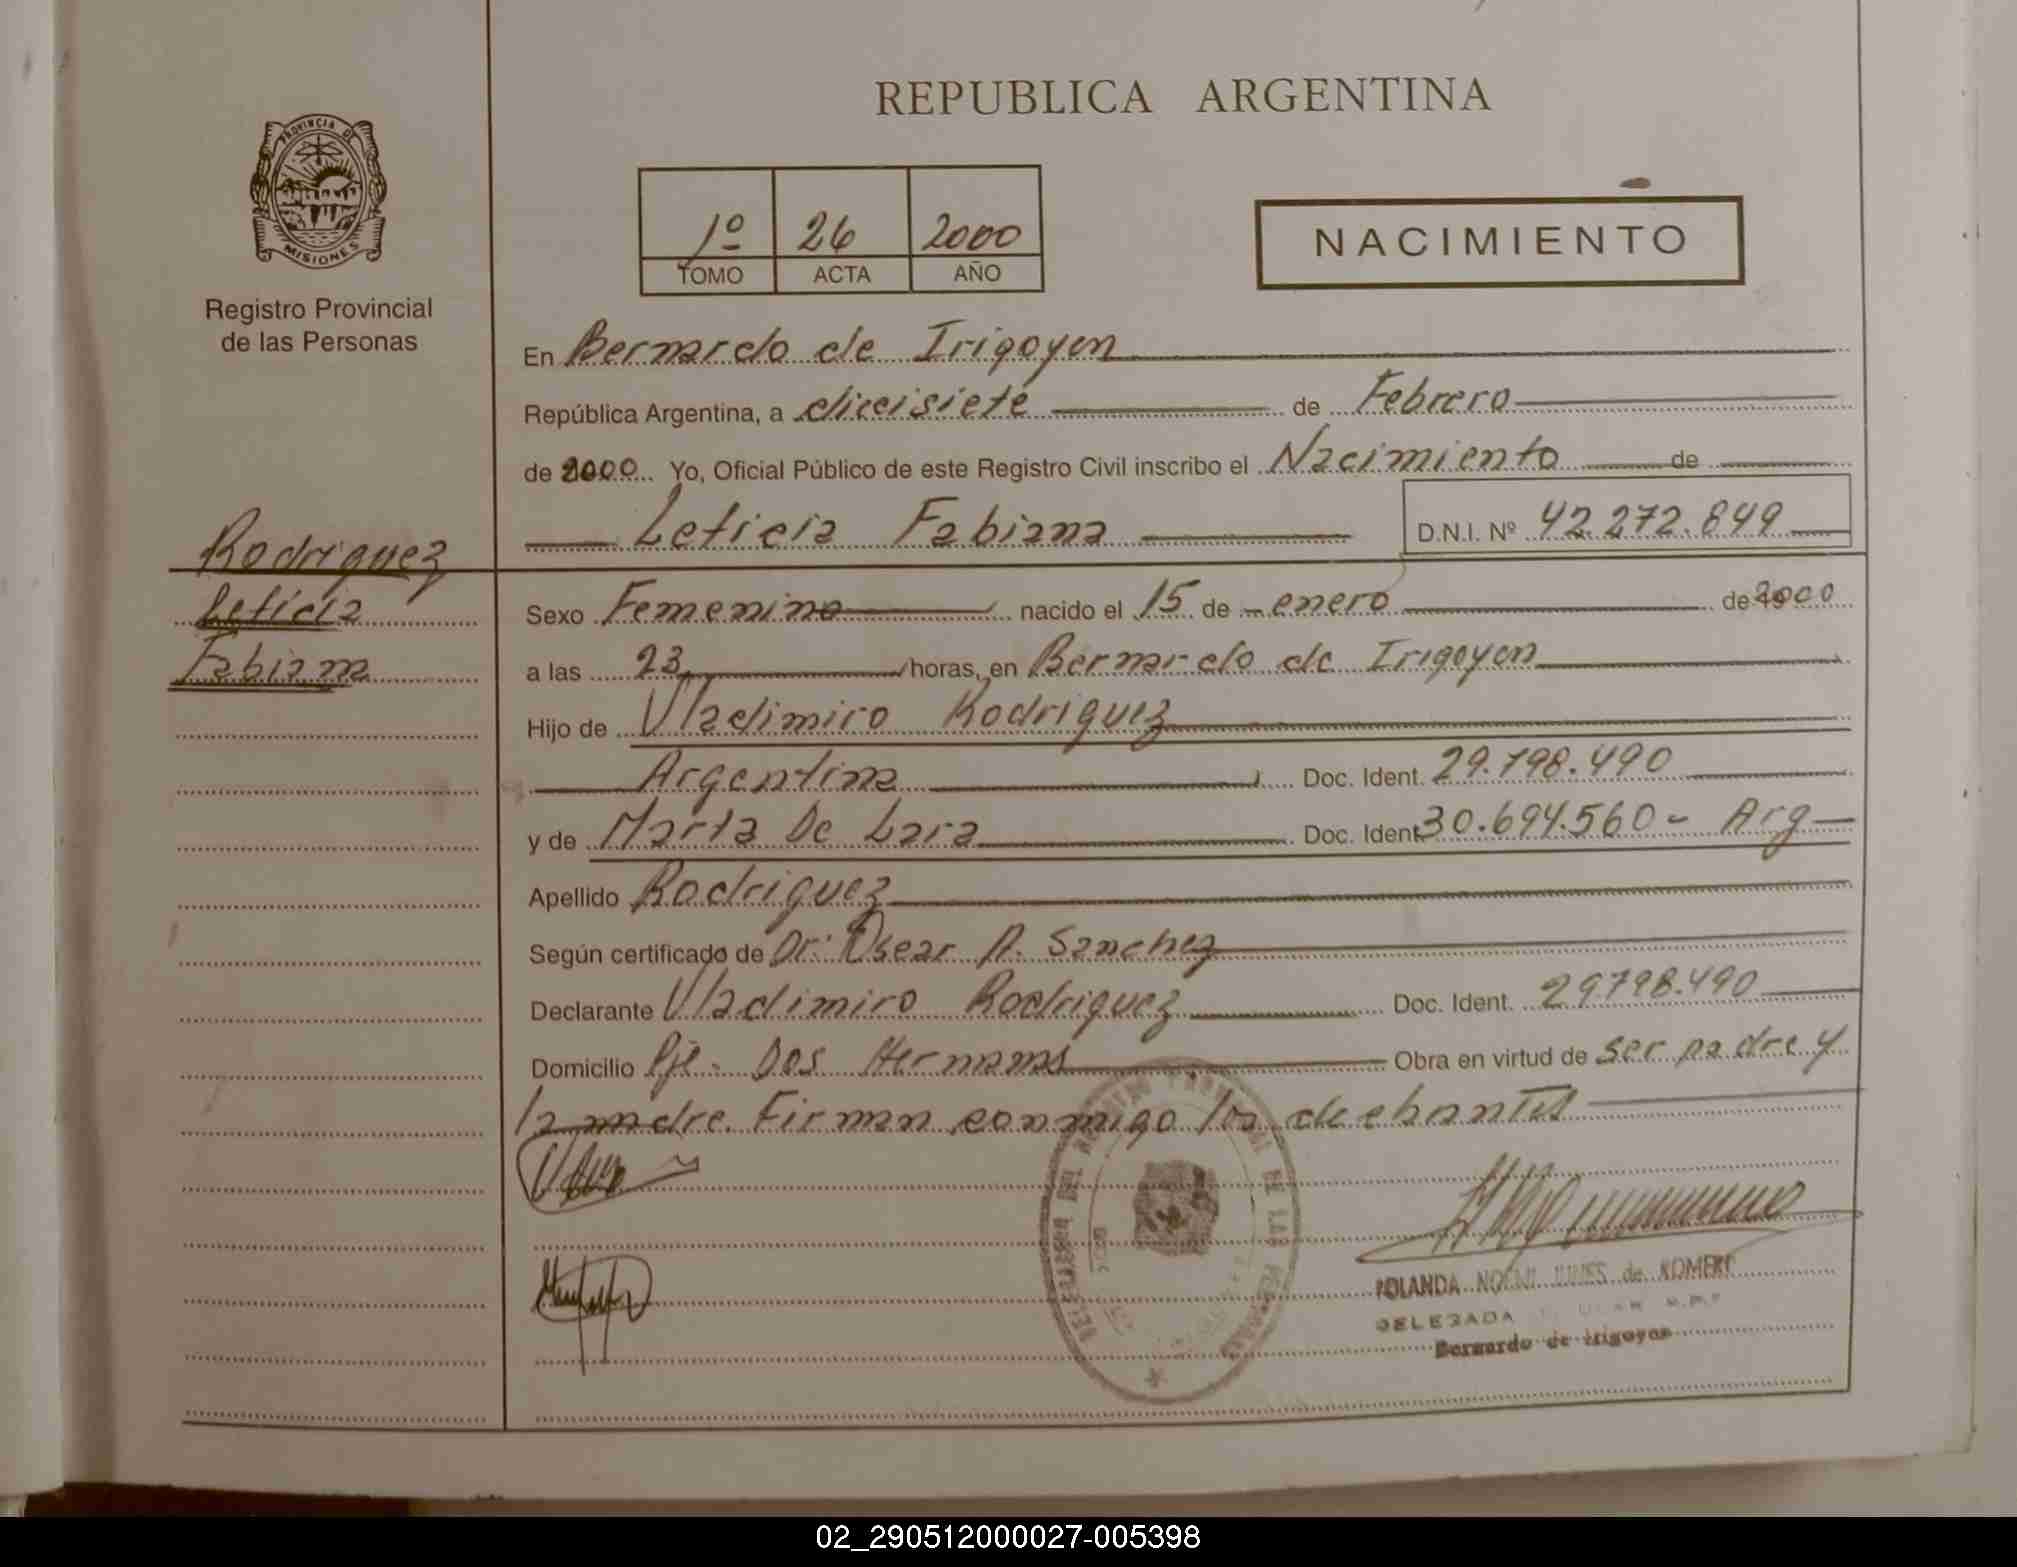 REPUBLICA ARGENTINA
PROVINCIA DE
MISIONES
Registro Provincial
de las Personas
1º 26 2000
TOMO ACTA AÑO
NACIMIENTO
En Bernardo de Irigoyen
República Argentina, a diecisiete de Febrero
de 2000 Yo, Oficial Público de este Registro Civil inscribo el Nacimiento de
Leticia Fabiana D.N.I. Nº 42.272.849
Rodriguez
Leticia
Fabiana
Sexo Femenino nacido el 15 de enero de 2000
a las 23 horas, en Bernardo de Irigoyen
Hijo de Vladimiro Rodriguez
Argentina Doc. Ident. 29.798.490
y de Maria De Lara Doc. Ident 30.694.560 - Arg
Apellido Rodriguez
Según certificado de Dr: Oscar A. Sanchez
Declarante Vladimiro Rodriguez Doc. Ident. 29798.490
Domicilio Pje. Dos Hermanas Obra en virtud de ser padre y
la madre. Firman conmigo los
DEL REGISTRO PROVINCIAL DE LAS PERSONAS
YOLANDA NOEMI de ROMERO
DELEGADA
Bernardo de Irigoyen
02_290512000027-005398